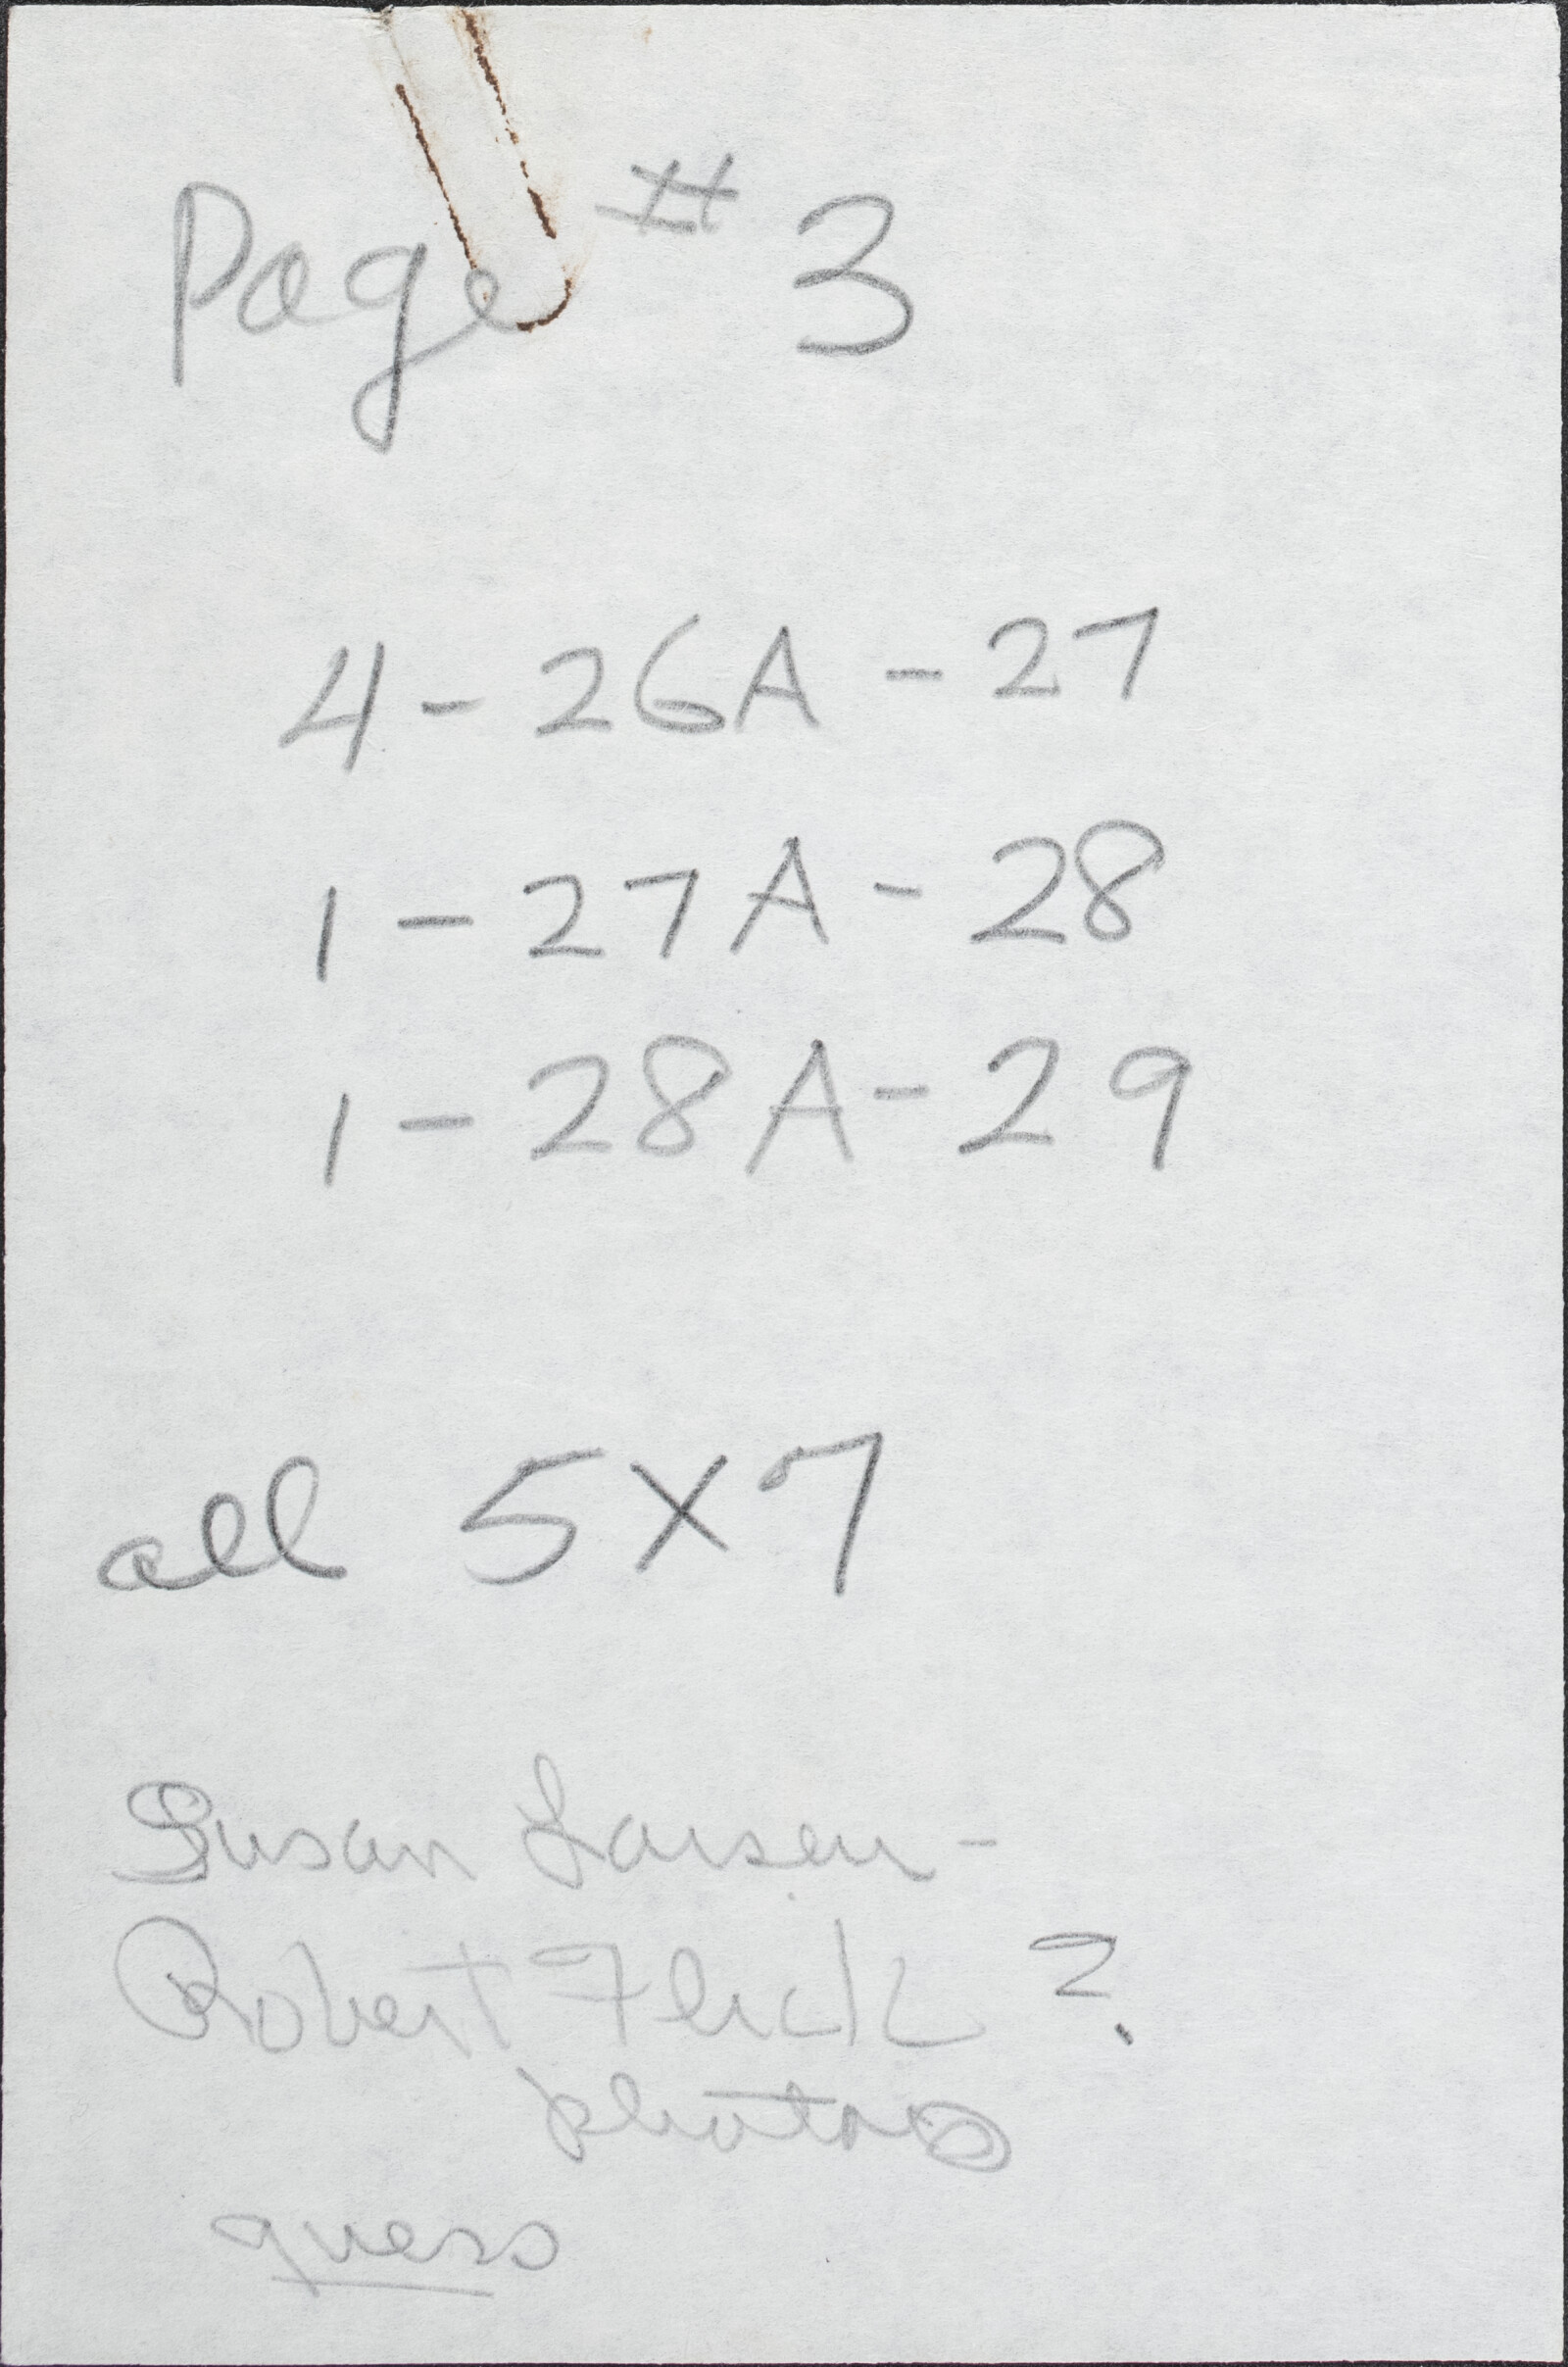 Page # 3
4 - 26A - 27
1 - 27A - 28
1 - 28A - 29
all 5x7
Susan Larsen -
Robert Flick ?
photos
guess